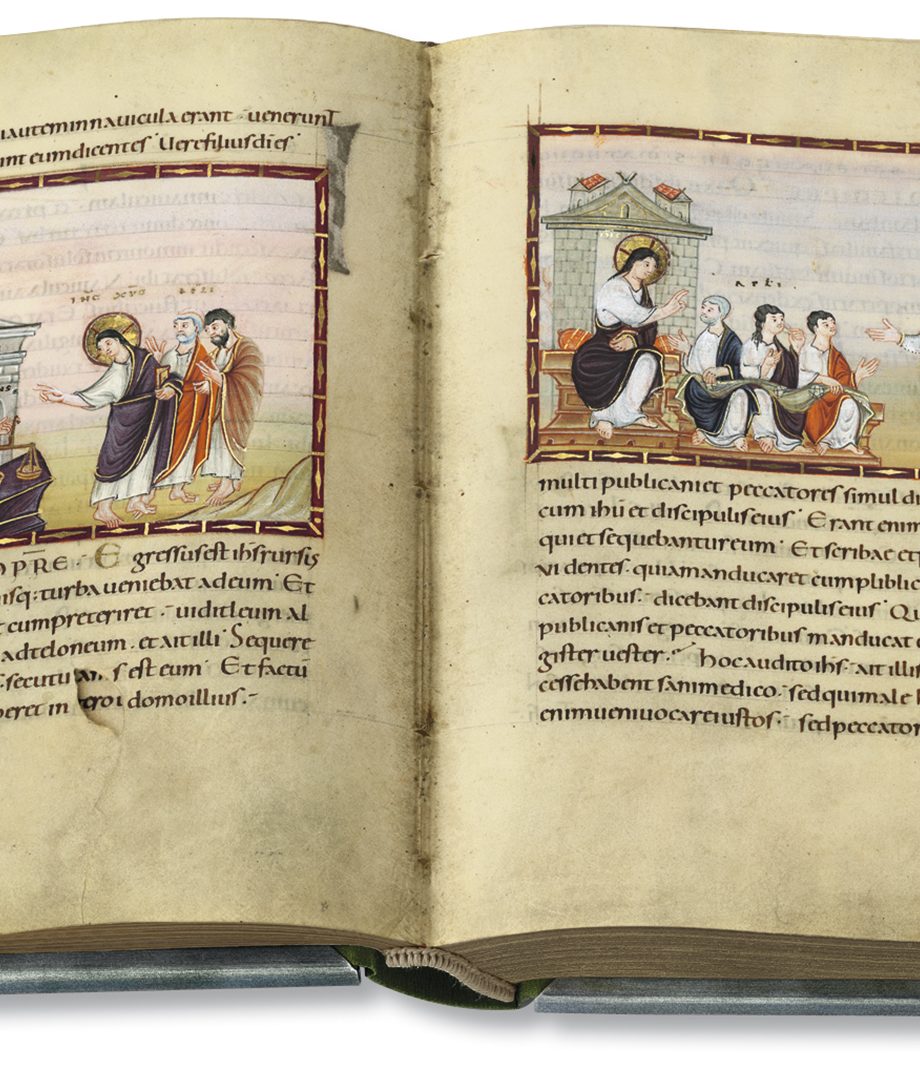 in nauicula erant · uenerunt
eum dicentes · Uere filius di es
IHC XPC APLI
PRE · Egressus est ihs rursis
turba ueniebat ad eum · Et
cum preteriret · uidit leum al
ad teloneum · et ait illi · Sequere
est eum · Et factū
in domo illius ·
APLI ·
multi publicani et peccatores simul di
cum ihū et discipulis eius · Erant enim
qui et sequebantur eum · Et scribae et
uidentes · quia manducaret cum publica
catoribus · dicebant discipulis eius · Qu
publicanis et peccatoribus manducat e
gister uester · Hoc audito ihs · ait illis
cesse habent sani medico · sed qui male h
enim ueni uocare iustos · sed peccator